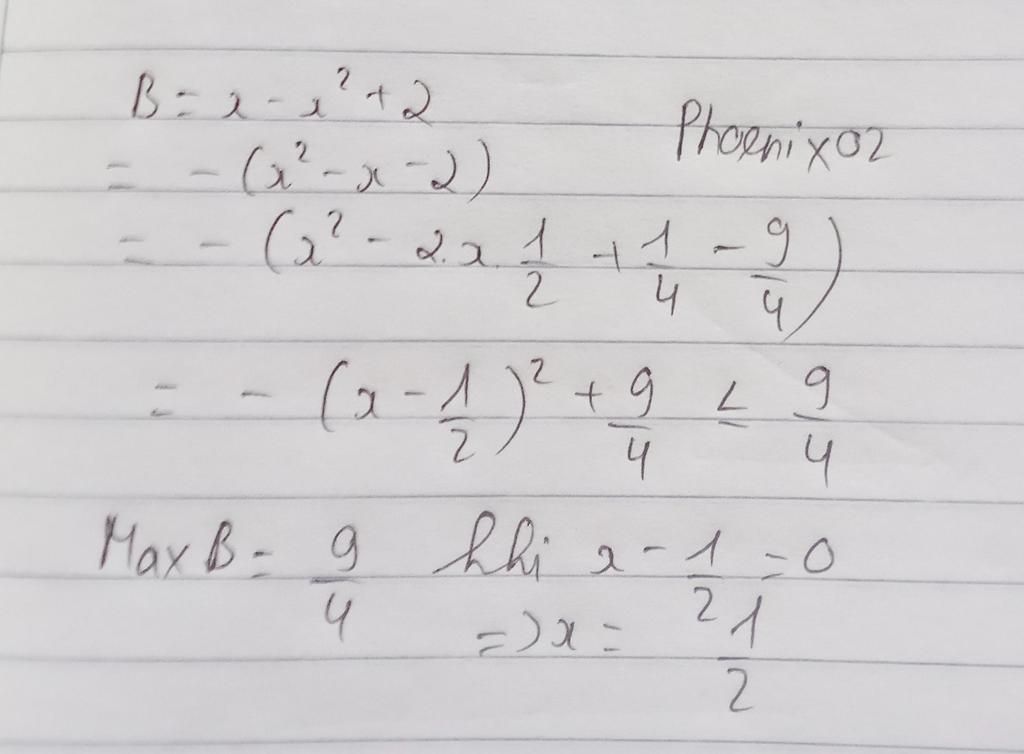 B = x - x² + 2
Phoenix02
= - (x² - x - 2)
= - (x² - 2.x.1/2 + 1/4 - 9/4)
= - (x - 1/2)² + 9/4 ≤ 9/4
Max B = 9/4 khi x - 1/2 = 0
=> x = 1/2